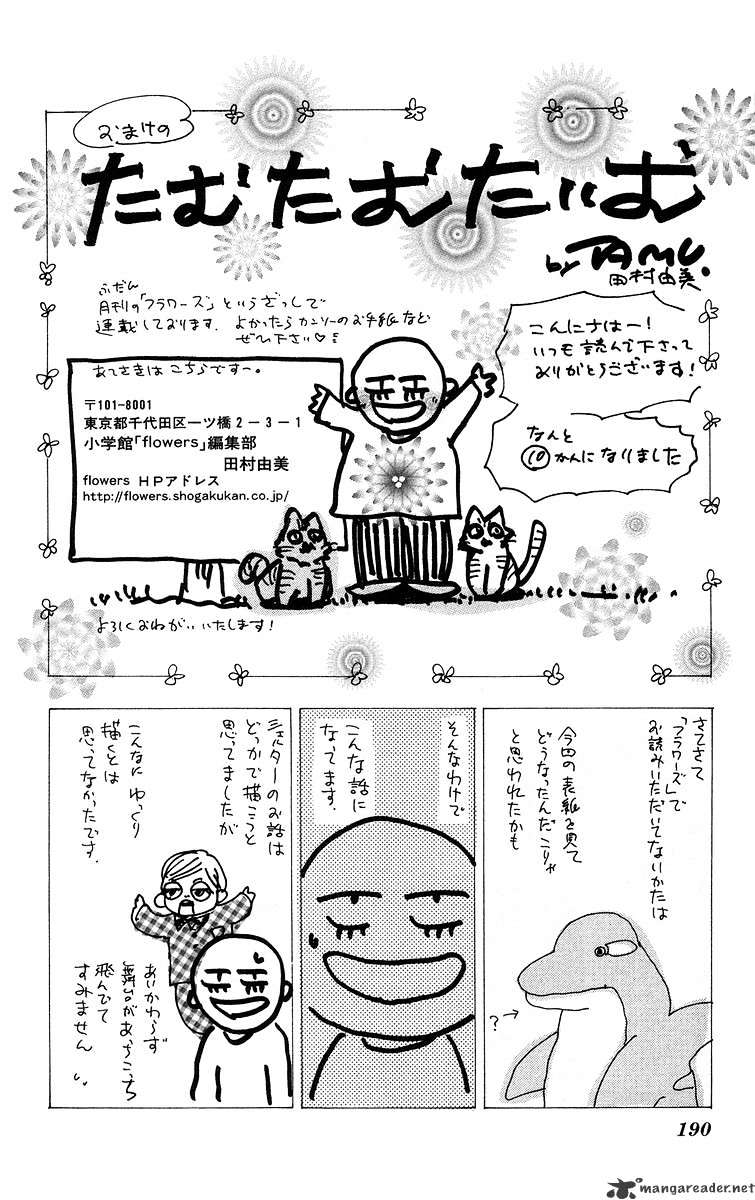 おまけの
たむたむたいむ
by TAMU.
田村由美
こんにちはー！
いつも読んで下さって
ありがとうございます！
なんと
⑩かんになりました
ふだん
月刊の「フラワーズ」というざっしで
連載しております。よかったらカンソーのお手紙など
ぜひ下さい♡
あてさきはこちらですー。
〒101-8001
東京都千代田区一ツ橋2-3-1
小学館「flowers」編集部
田村由美
flowers HPアドレス
http://flowers.shogakukan.co.jp/
よろしくおねがいいたします！
さてさて
「フラワーズ」で
お読みいただいてないかたは
今回の表紙を見て
どうなったんだこりゃ
と思われたかも
?→
そんなわけで
こんな話に
なってます。
シェルターのお話は
どっかで描こうと
思ってましたが
こんなにゆっくり
描くとは
思ってなかったです。
あいかわらず
舞台があっちこっち
飛んでて
すみません
190
mangareader.net